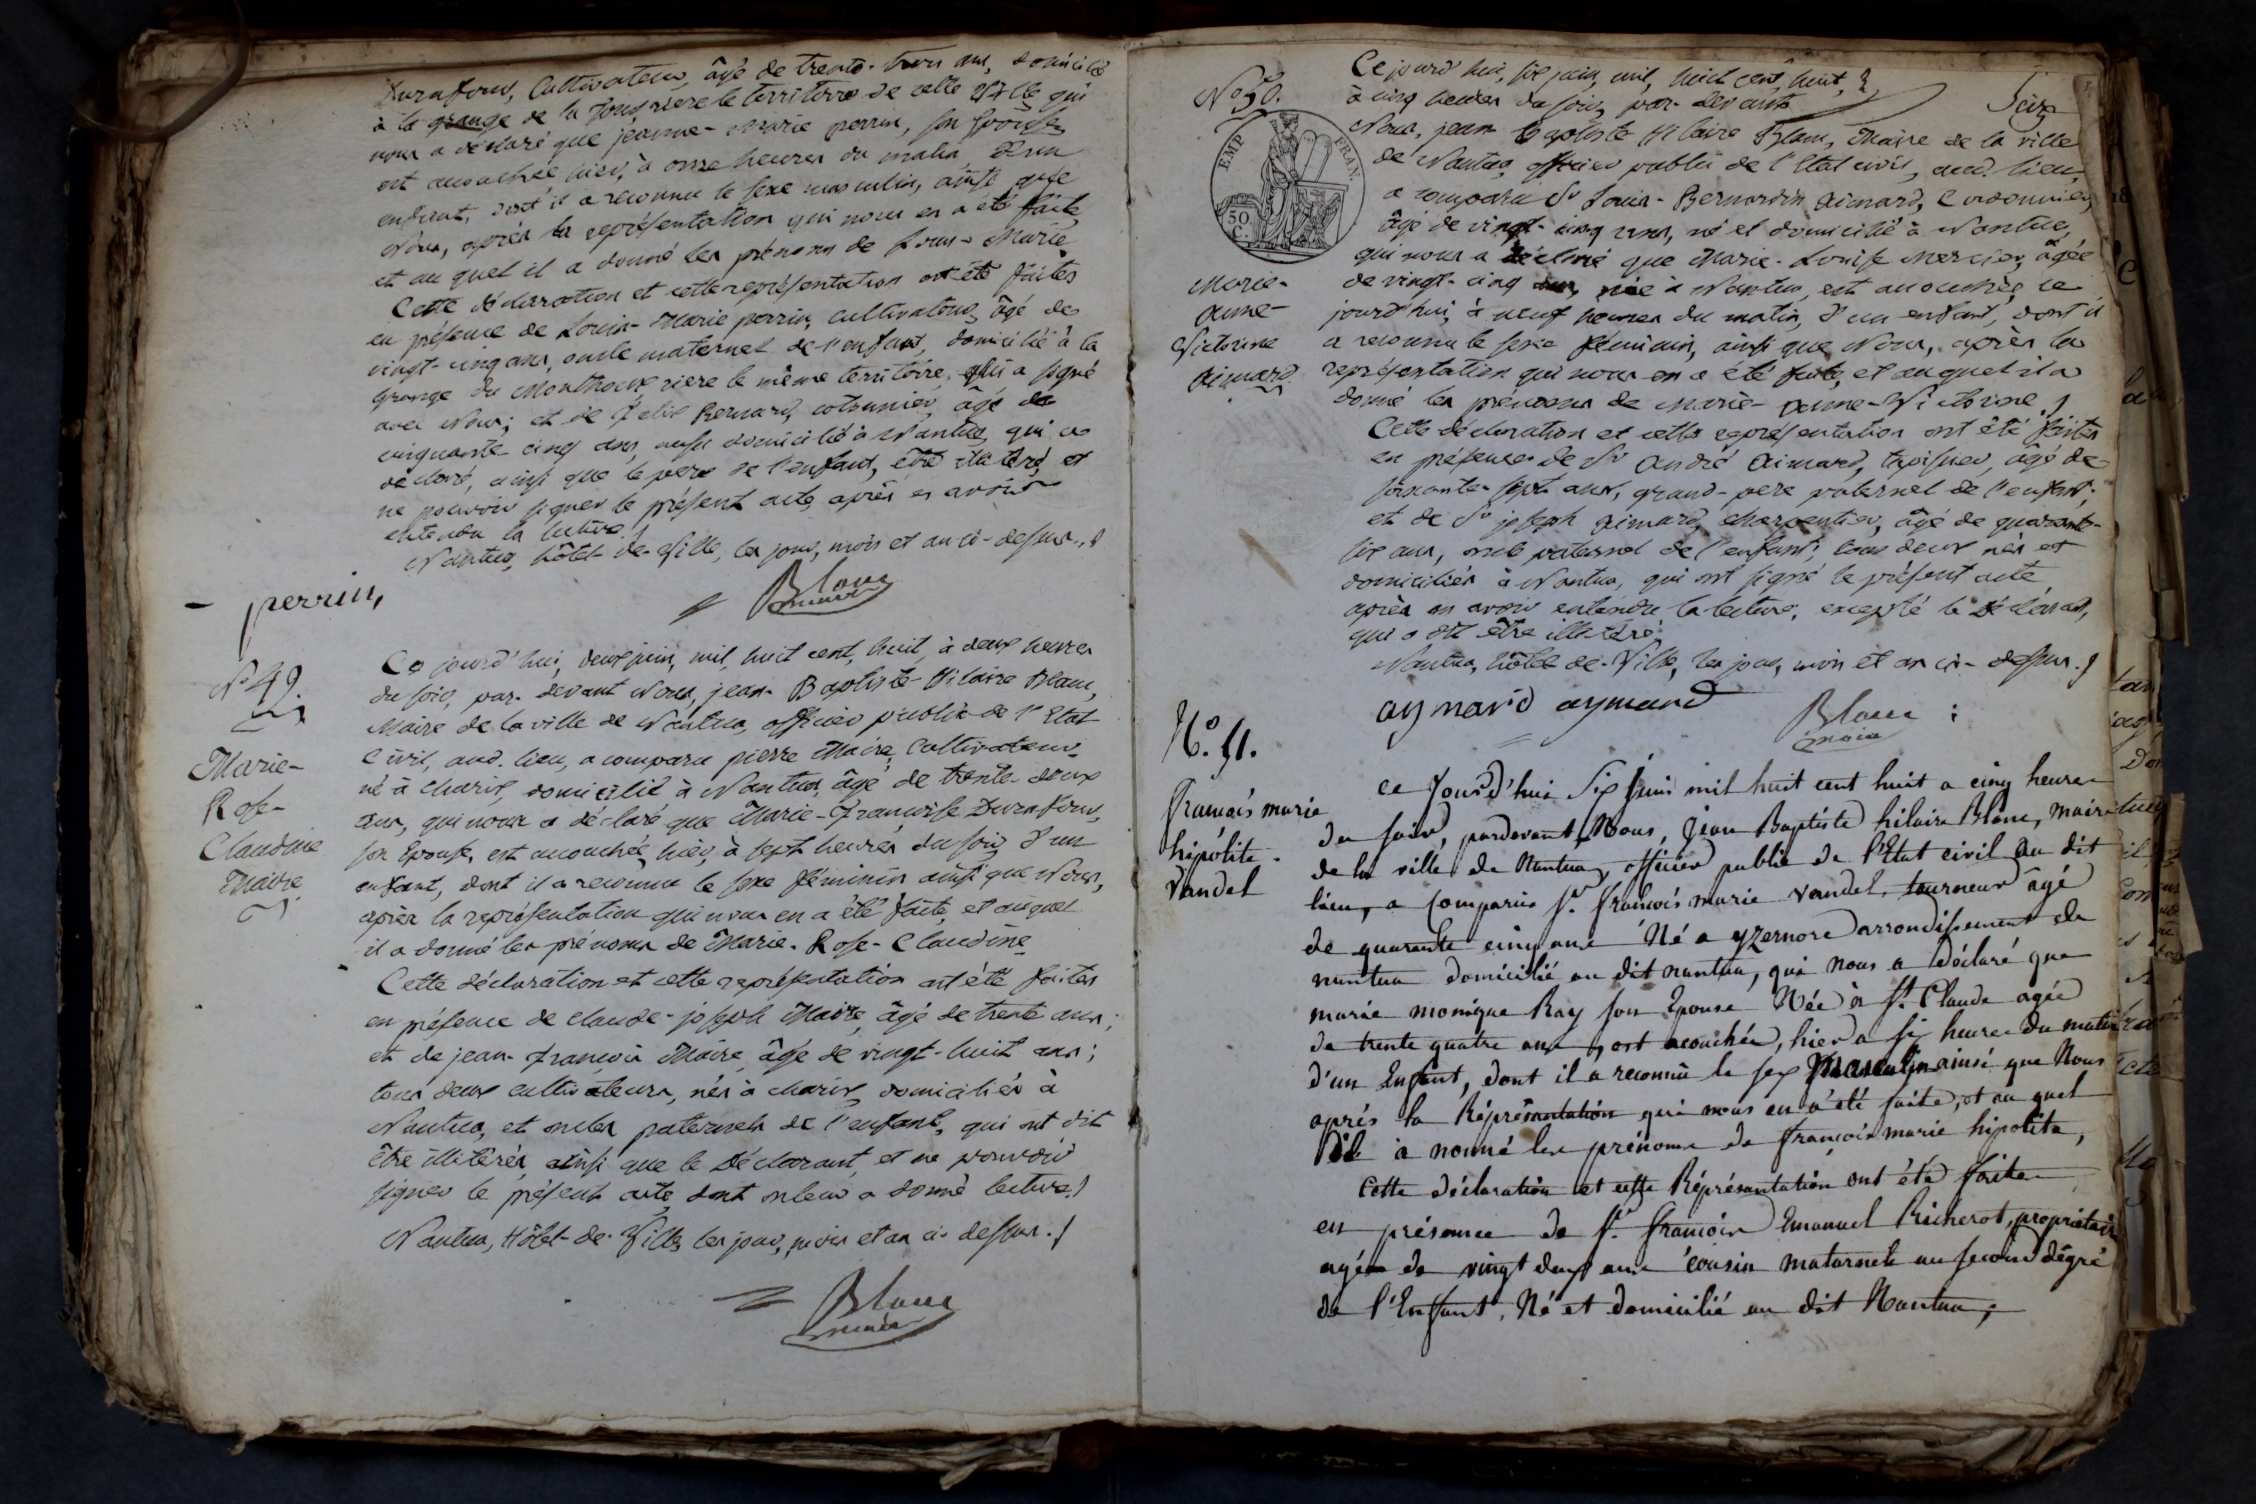 Durafour, Cultivateur, âgé de trente-trois ans, domicilié
à la grange de la Joug riere le territoire de cette Ville qui
nous a déclaré que jeanne-Marie perrin, son Epouse,
est accouchée hier, à onze heures du matin, d'un
enfant, dont il a reconnu le sexe masculin, ainsi que
Nous, après la représentation qui nous en a été faite,
et au quel il a donné les prénoms de Louis-Marie
Cette déclaration et cette représentation ont été faites
en présence de Louis-Marie perrin, cultivateur, âgé de
vingt-cinq ans, oncle maternel de l'enfant, domicilié à la
Grange du riere le même territoire, qui a signé
avec Nous; et de Felix Bernard, cotonnier, âgé de
cinquante cinq ans, aussi domicilié à Nantua, qui a
déclaré, ainsi que le pere de l'enfant, être illitéré, et
ne pouvoir signer le présent acte, après en avoir
entendu la lecture./
Nantua, hôtel-de-Ville, les jour, mois et an ci-dessus./
perrin,
Blanc
maire
N° 49.
Marie-
Rose-
Claudine
Maire
Ce jourd'hui, deux juin, mil, huit cent, huit, à deux heures
du soir, par-devant Nous, jean-Baptiste-Hilaire Blanc,
Maire de la ville de Nantua, officier public de l'Etat
Civil, aud. lieu, a comparu pierre Maire, Cultivateur
né à Charix, domicilié à Nantua, âgé de trente-deux
ans, qui nous a déclaré que Marie-Françoise Durafour,
son Epouse, est accouchée, hier, à sept heures du soir, d'un
enfant, dont il a reconnu le sexe féminin ainsi que Nous,
après la représentation qui nous en a été faite, et auquel
il a donné les prénoms de Marie-Rose-Claudine
Cette déclaration et cette représentation ont été faites
en présence de claude-joseph Maire, âgé de trente ans;
et de jean-François Maire, âgé de vingt-huit ans;
tous deux cultivateurs, nés à charix, domiciliés à
Nantua, et oncles paternels de l'enfant, qui ont dit
être illitérés, ainsi que le Déclarant, et ne pouvoir
signer le présent acte, dont on leur a donné lecture./
Nantua, Hôtel-de-Ville, les jour, mois et an ci-dessus./
Blanc
maire
N° 50.
Seize
EMP. FRAN.
50 C.
Marie-
anne-
Victorine
Aimard
Ce jourd'hui, six juin, mil, huit cent, huit,
à cinq heures du soir, par-devant
Nous, jean-baptiste Hilaire Blanc, Maire de la ville
de Nantua, officier public de l'Etat civil, aud. lieu,
a comparu Sr Louis-Bernardin Aimard, Cordonnier,
âgé de vingt-cinq ans, né et domicilié à Nantua,
qui nous a déclaré que Marie-Louise Mercier, âgée
de vingt-cinq ans, née à Nantua, est accouchée, ce
jourd'hui, à neuf heures du matin, d'un enfant, dont il
a reconnu le sexe féminin, ainsi que Nous, après la
représentation qui nous en a été faite, et auquel il a
donné les prénoms de Marie-Anne-Victorine./
Cette déclaration et cette représentation ont été faites
en présence de Sr André Aimard, âgé de
soixante-sept ans, grand-pere paternel de l'enfant;
et de Sr joseph Aimard, charpentier, âgé de quarante-
six ans, oncle paternel de l'enfant; tous deux nés et
domiciliés à Nantua, qui ont signé le présent acte,
après en avoir entendu la lecture, excepté le Déclarant,
qui a dit être illitéré;
Nantua, hôtel-de-Ville, les jour, mois et an ci-dessus./
aymard aymard
Blanc
maire
N° 51.
françois marie
hipolite
Vandel
ce Jourd'hui Six Juin mil huit cent huit a cinq heures
du soir, pardevant Nous, Jean Baptiste hilaire Blanc, maire
de la ville de Nantua, officier public de l'Etat civil au dit
lieu, a Comparu Sr. françois marie vandel, tourneur âgé
de quarante cinq ans Né a yzernore arrondissement de
nantua domicilié au dit nantua, qui nous a Déclaré que
marie monique Ray son Epouse Née à St. Claude agée
de trente quatre ans, est acouchée, hier a six heures du matin
d'un Enfant, dont il a reconnu le sex Masculin ainsi que Nous
après la Réprésentation qui nous en a été faite, et au quel
il a nomé les prénoms de françois marie hipolite,
cette déclaration et cette Réprésantation ont été faites
en présence de Sr. françois Emanuel Richerot, propriétaire
agé de vingt deux ans cousin maternel au second dégré
de l'Enfant, Né et domicilié au dit Nantua;